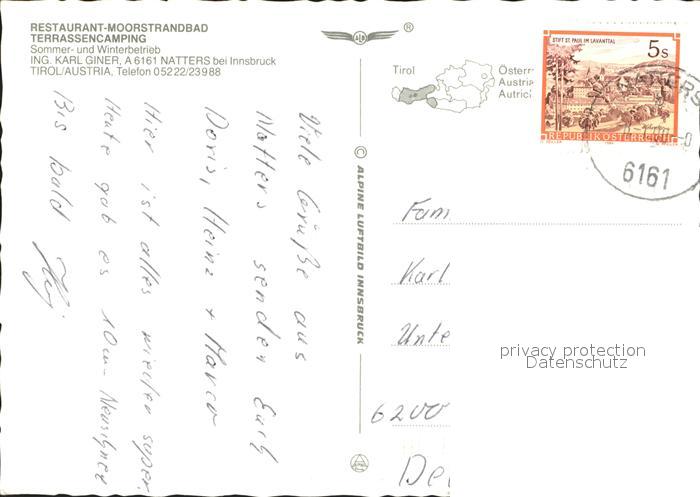 RESTAURANT-MOORSTRANDBAD
TERRASSENCAMPING
Sommer- und Winterbetrieb
ING. KARL GINER, A 6161 NATTERS bei Innsbruck
TIROL/AUSTRIA, Telefon 05222/23988
Viele Grüße aus
Natters senden Euch
Doris, Heinz + Marco
Hier ist alles wieder super.
Heute gab es 10cm-Neuschnee
Bis bald
© ALPINE LUFTBILD INNSBRUCK
ALI
®
Tirol
Österr
Austria
Autric
STIFT ST. PAUL IM LAVANTTAL
5s
REPUBLIK ÖSTERREICH
6161
Fam
Karl
Unte
6200
De
privacy protection
Datenschutz